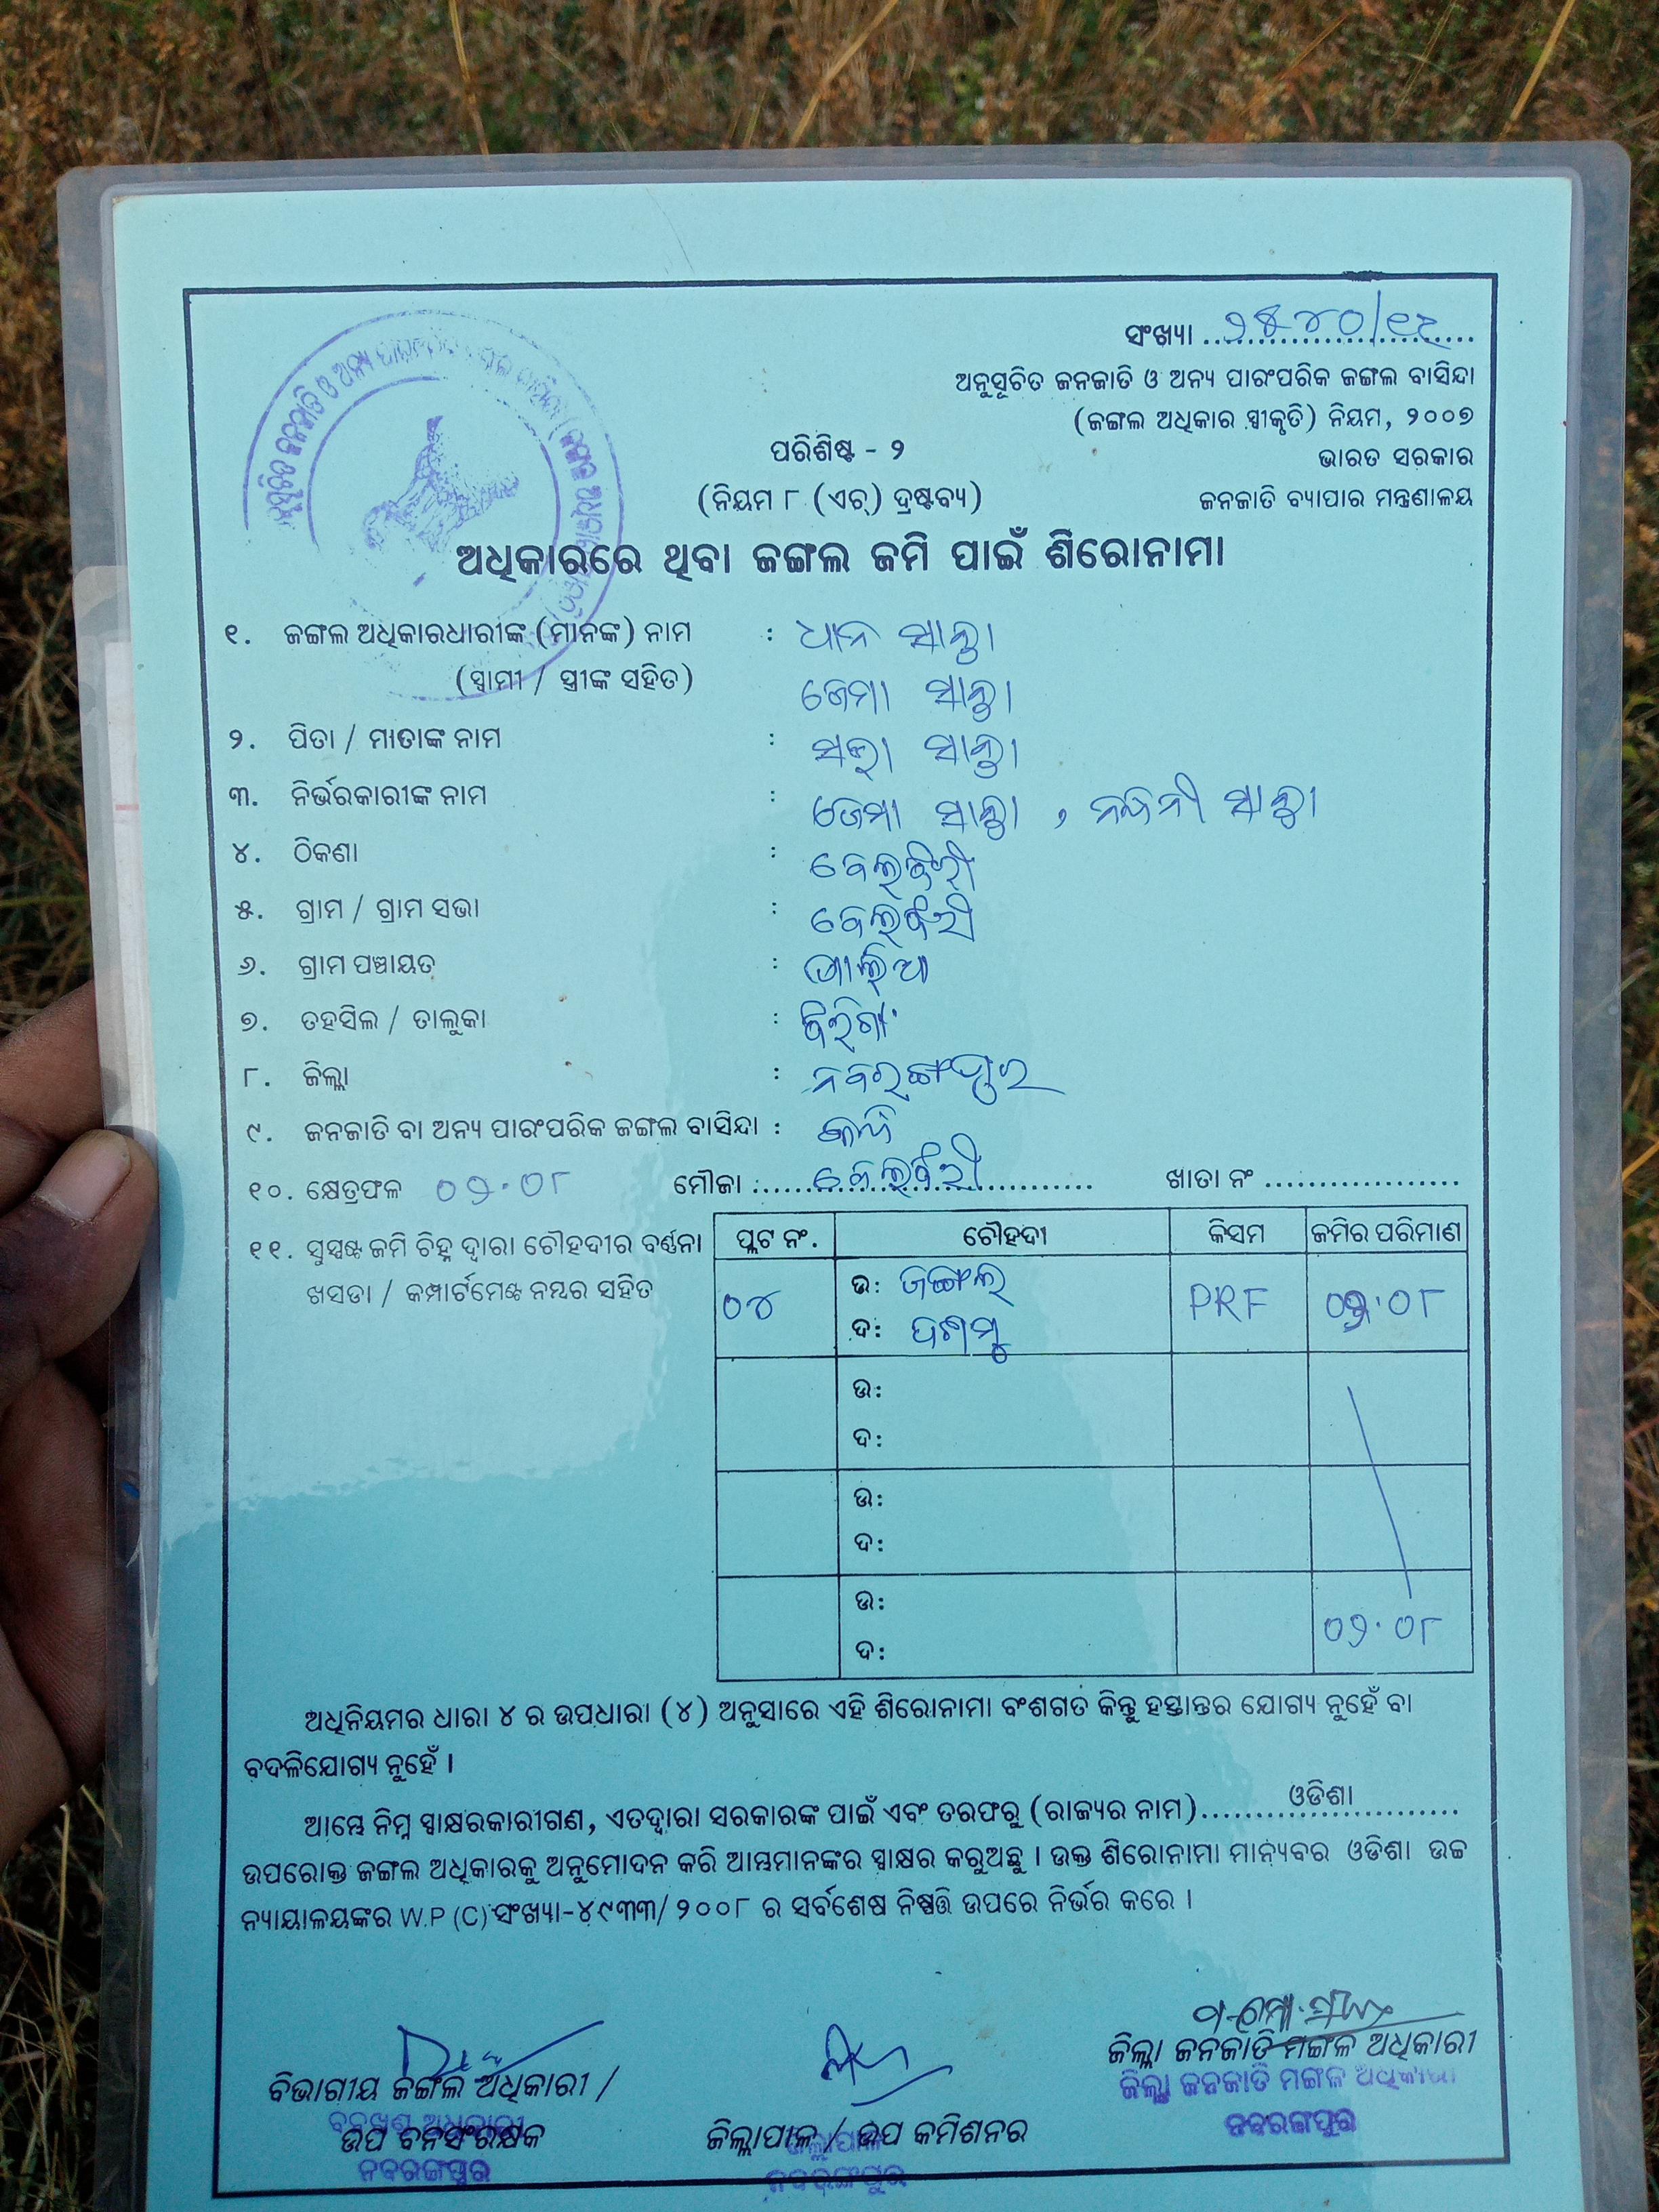 ସଂଖ୍ୟା ୨୫୪୦/୧୧
ଅନୁସୂଚିତ ଜନଜାତି ଓ ଅନ୍ୟ ପାରଂପରିକ ଜଙ୍ଗଲ ବାସିନ୍ଦା
(ଜଙ୍ଗଲ ଅଧିକାର ସ୍ୱୀକୃତି) ନିୟମ, ୨୦୦୭
ଭାରତ ସରକାର
ଜନଜାତି ବ୍ୟାପାର ମନ୍ତ୍ରଣାଳୟ
ପରିଶିଷ୍ଟ - ୨
(ନିୟମ ୮ (ଏଚ୍) ଦ୍ରଷ୍ଟବ୍ୟ)
ଅଧିକାରରେ ଥିବା ଜଙ୍ଗଲ ଜମି ପାଇଁ ଶିରୋନାମା
୧. ଜଙ୍ଗଲ ଅଧିକାରଧାରୀଙ୍କ (ମାନଙ୍କ) ନାମ : ଧାନ ସାନ୍ତା
(ସ୍ୱାମୀ / ସ୍ତ୍ରୀଙ୍କ ସହିତ) ଜେମା ସାନ୍ତା
୨. ପିତା / ମାତାଙ୍କ ନାମ : ସାନ୍ତା
୩. ନିର୍ଭରକାରୀଙ୍କ ନାମ : ଜେମା ସାନ୍ତା , ନନ୍ଦିନୀ ସାନ୍ତା
୪. ଠିକଣା :
୫. ଗ୍ରାମ / ଗ୍ରାମ ସଭା :
୬. ଗ୍ରାମ ପଞ୍ଚାୟତ :
୭. ତହସିଲ / ତାଲୁକା :
୮. ଜିଲ୍ଲା : ନବରଙ୍ଗପୁର
୯. ଜନଜାତି ବା ଅନ୍ୟ ପାରଂପରିକ ଜଙ୍ଗଲ ବାସିନ୍ଦା :
୧୦. କ୍ଷେତ୍ରଫଳ ୦୨.୦୮ ମୌଜା : ଖାତା ନଂ
୧୧. ସୁସ୍ପଷ୍ଟ ଜମି ଚିହ୍ନ ଦ୍ୱାରା ଚୌହଦୀର ବର୍ଣ୍ଣନା
ଖସଡା / କମ୍ପାର୍ଟମେଣ୍ଟ ନମ୍ବର ସହିତ
ପ୍ଲଟ ନଂ. ଚୌହଦୀ କିସମ ଜମିର ପରିମାଣ
୦୪ ଉ: ଜଙ୍ଗଲ PRF ୦୨.୦୮
ଦ:
ଉ:
ଦ:
ଉ:
ଦ:
ଉ:
ଦ: ୦୨.୦୮
ଅଧିନିୟମର ଧାରା ୪ ର ଉପଧାରା (୪) ଅନୁସାରେ ଏହି ଶିରୋନାମା ବଂଶଗତ କିନ୍ତୁ ହସ୍ତାନ୍ତର ଯୋଗ୍ୟ ନୁହେଁ ବା
ବଦଳିଯୋଗ୍ୟ ନୁହେଁ ।
ଆମ୍ଭେ ନିମ୍ନ ସ୍ୱାକ୍ଷରକାରୀଗଣ, ଏତଦ୍ୱାରା ସରକାରଙ୍କ ପାଇଁ ଏବଂ ତରଫରୁ (ରାଜ୍ୟର ନାମ) ଓଡିଶା
ଉପରୋକ୍ତ ଜଙ୍ଗଲ ଅଧିକାରକୁ ଅନୁମୋଦନ କରି ଆମ୍ଭମାନଙ୍କର ସ୍ୱାକ୍ଷର କରୁଅଛୁ । ଉକ୍ତ ଶିରୋନାମା ମାନ୍ୟବର ଓଡିଶା ଉଚ୍ଚ
ନ୍ୟାୟାଳୟଙ୍କର W.P (C) ସଂଖ୍ୟା-୪୯୩୩/୨୦୦୮ ର ସର୍ବଶେଷ ନିଷ୍ପତ୍ତି ଉପରେ ନିର୍ଭର କରେ ।
ଜିଲ୍ଲା ଜନଜାତି ମଙ୍ଗଳ ଅଧିକାରୀ
ଜିଲ୍ଲା ଜନଜାତି ମଙ୍ଗଳ ଅଧିକାରୀ
ନବରଙ୍ଗପୁର
ବିଭାଗୀୟ ଜଙ୍ଗଲ ଅଧିକାରୀ /
ବନଖଣ୍ଡ ଅଧିକାରୀ
ଉପ ବନସଂରକ୍ଷକ
ନବରଙ୍ଗପୁର
ଜିଲ୍ଲାପାଳ / ଉପ କମିଶନର
ଜିଲ୍ଲାପାଳ
ନବରଙ୍ଗପୁର